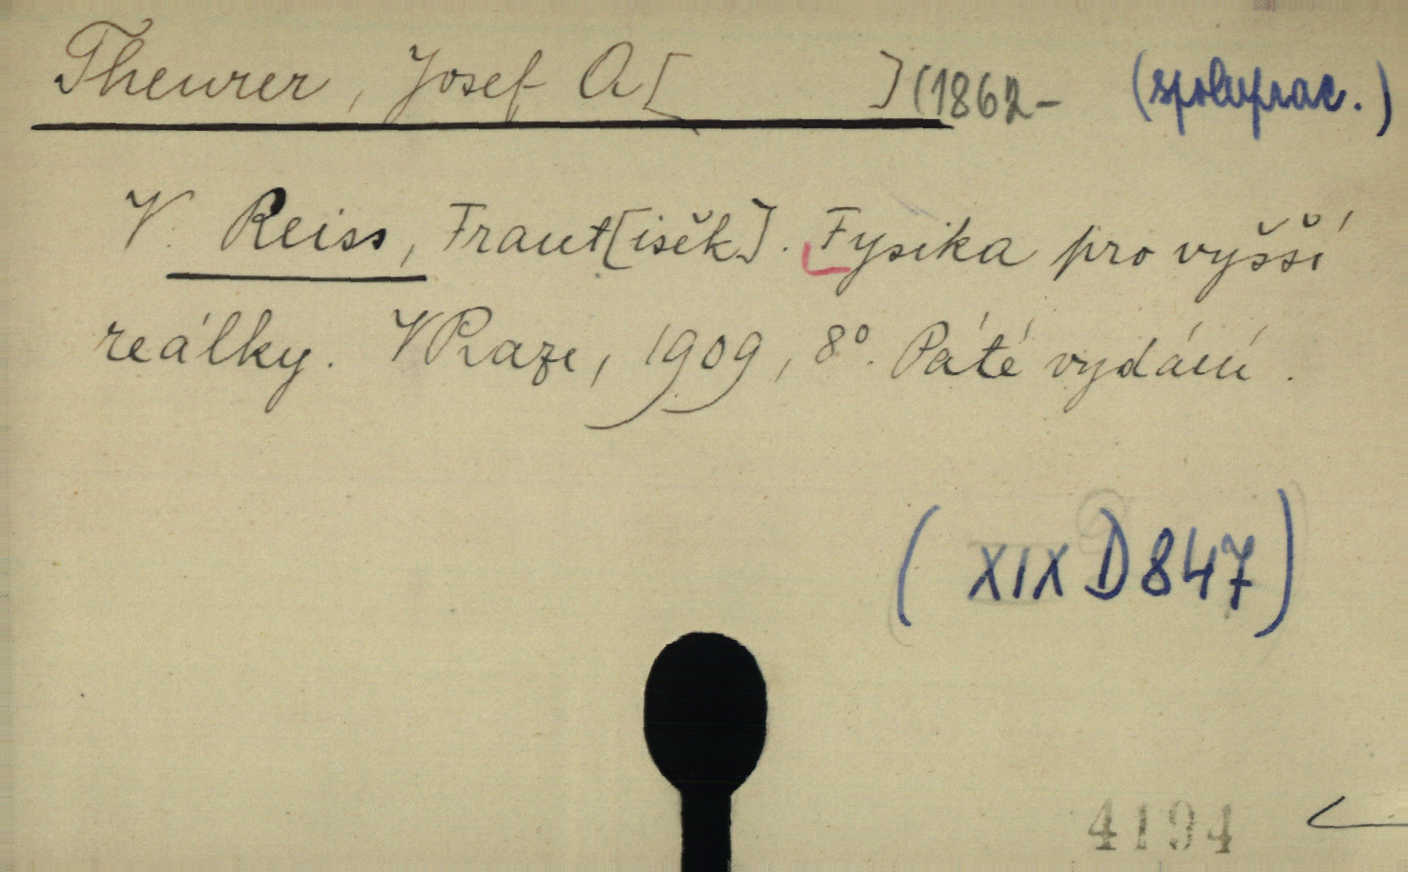 Theurer, Josef A[ ] (1862- (spoluprac.)
V. Reiss, Frant[išek]. Fysika pro vyšší
reálky. V Praze, 1909, 8°. Páté vydání.
(XIX D 847)
4194